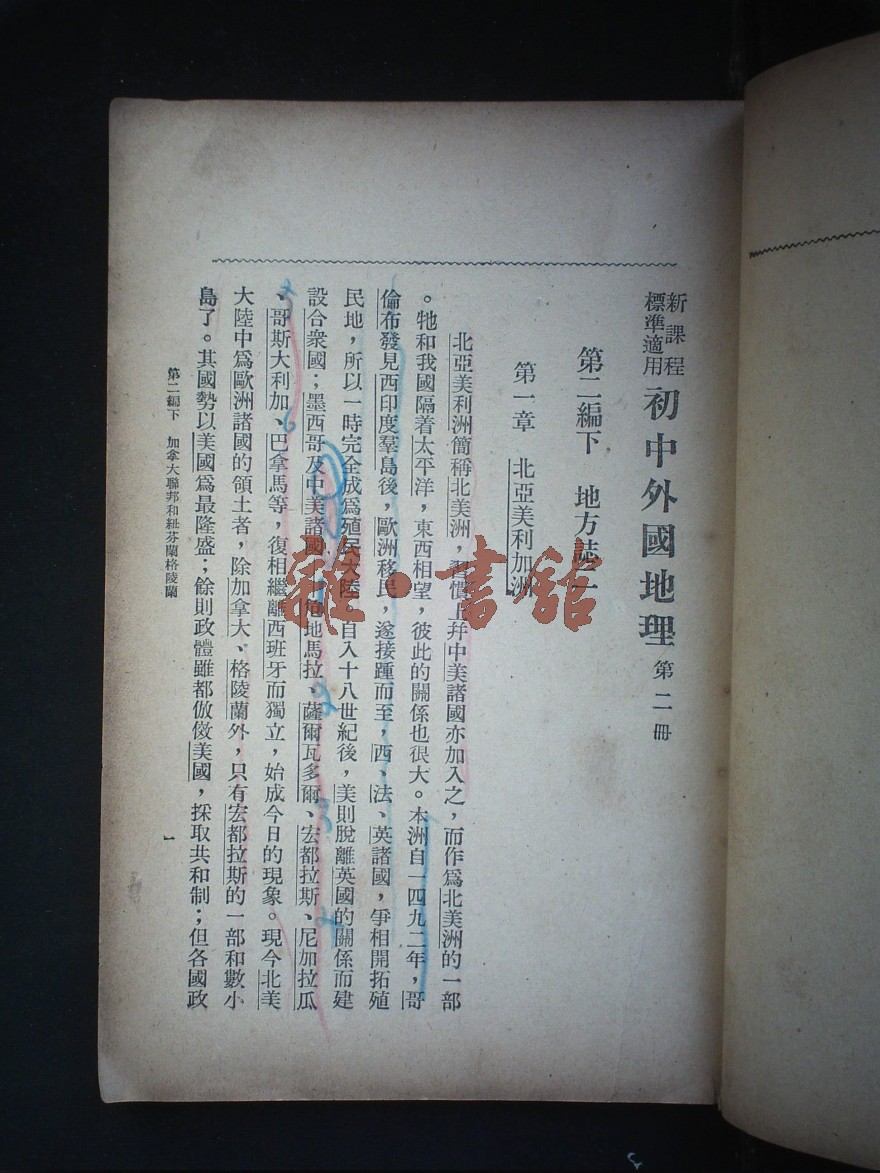 新課程
標準適用
初中外國地理 第二冊
第二編下 地方誌二
第一章 北亞美利加洲
北亞美利洲簡稱北美洲，習慣上幷中美諸國亦加入之，而作爲北美洲的一部
。牠和我國隔着太平洋，東西相望，彼此的關係也很大。本洲自一四九二年，哥
倫布發見西印度羣島後，歐洲移民，遂接踵而至，西、法、英諸國，爭相開拓殖
民地，所以一時完全成爲殖民大陸。自入十八世紀後，美則脫離英國的關係而建
設合衆國；墨西哥及中美諸國，危地馬拉、薩爾瓦多爾、宏都拉斯、尼加拉瓜
、哥斯大利加、巴拿馬等，復相繼離西班牙而獨立，始成今日的現象。現今北美
大陸中爲歐洲諸國的領土者，除加拿大、格陵蘭外，只有宏都拉斯的一部和數小
島了。其國勢以美國爲最隆盛；餘則政體雖都倣傚美國，採取共和制；但各國政
第二編下 加拿大聯邦和紐芬蘭格陵蘭
一
雜·書館